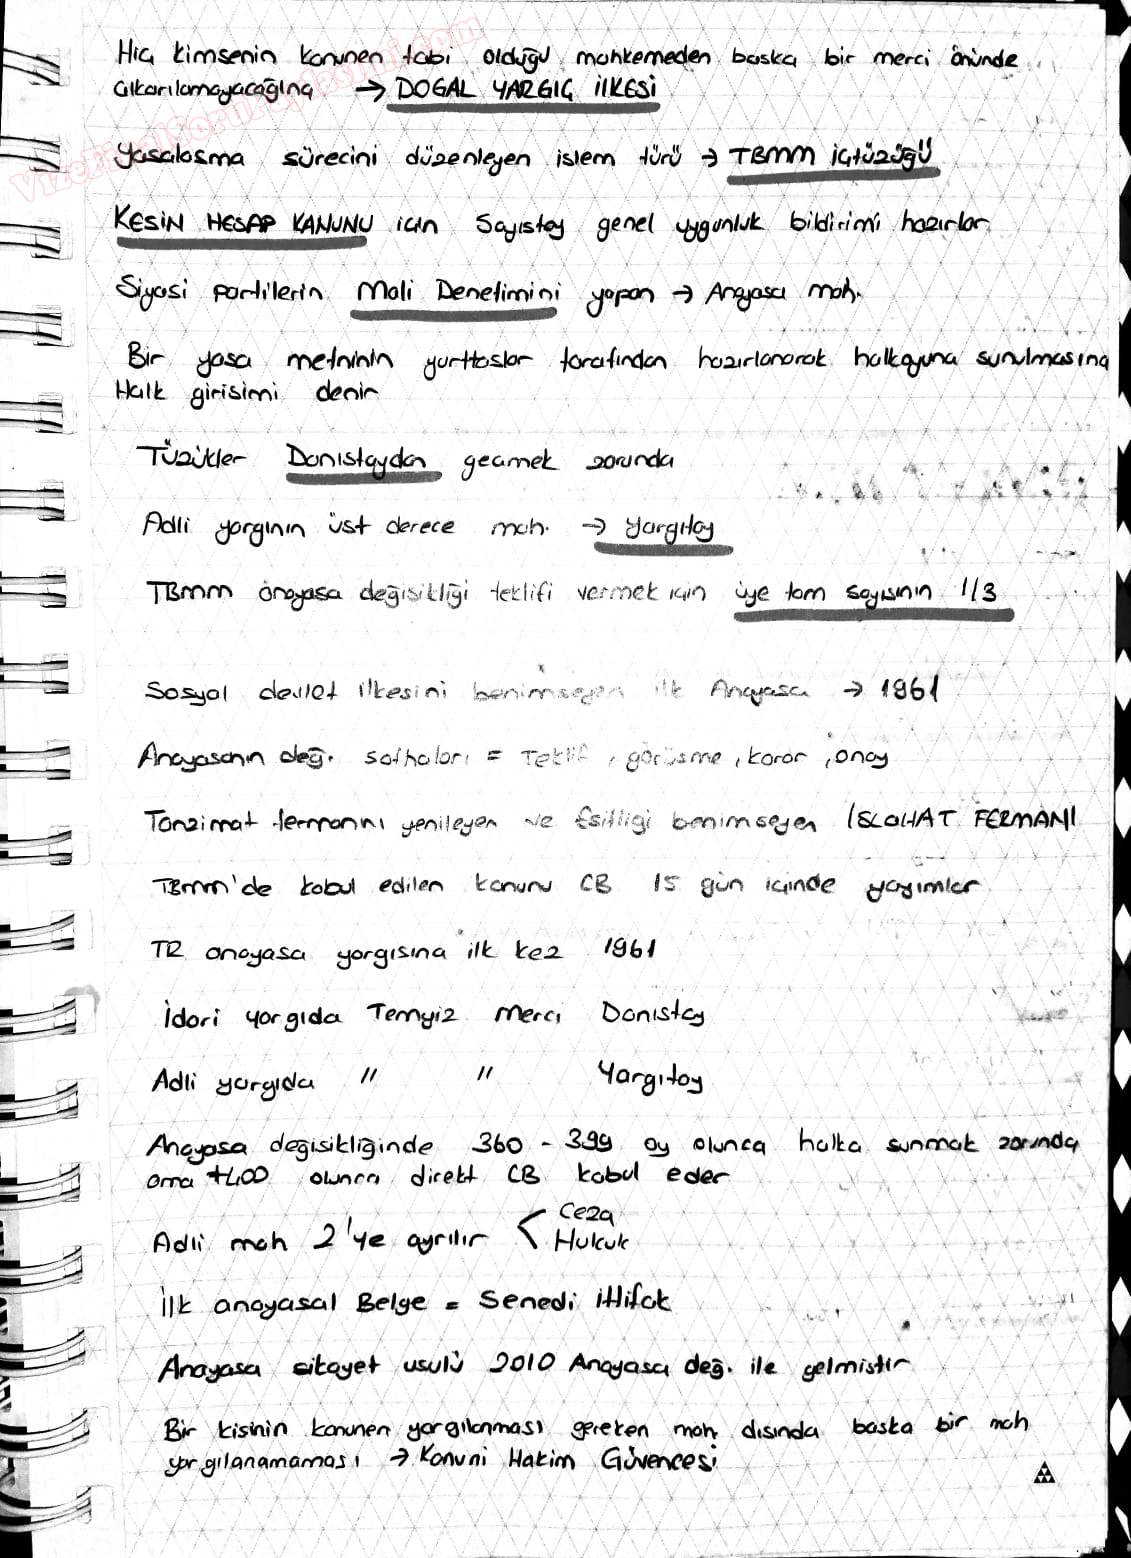 VizeFinalSoruPaylasimi.com
Hiç kimsenin kanunen tabi olduğu mahkemeden baska bir merci önünde
çıkarılamayacağına → DOĞAL YARGIÇ İLKESİ
Yasalasma sürecini düzenleyen islem türü → TBMM içtüzüğü
KESİN HESAP KANUNU için Sayıstay genel uygunluk bildirimi hazırlar
Siyasi partilerin Mali Denetimini yapan → Anayasa mah.
Bir yasa metninin yurttaslar tarafından hazırlanarak halkoyuna sunulmasına
Halk girisimi denir
Tüzükler Danıstaydan geçmek zorunda
Adli yargının üst derece mah. → Yargıtay
TBMM anayasa değisikliği teklifi vermek için üye tam sayısının 1/3
Sosyal devlet ilkesini benimseyen ilk Anayasa → 1961
Anayasanın değ. safhaları = Teklif, görüsme, karar, onay
Tanzimat fermanını yenileyen ve Esitliği benimseyen ISLAHAT FERMANI
TBMM'de kabul edilen kanunu CB 15 gün içinde yayımlar
TR anayasa yargısına ilk kez 1961
İdari yargıda Temyiz Merci Danıstay
Adli yargıda " " Yargıtay
Anayasa değisikliğinde 360 - 399 oy olunca halka sunmak zorunda
ama +400 olunca direkt CB kabul eder
Adli mah 2'ye ayrılır < Ceza
Hukuk
İlk anayasal Belge = Senedi ittifak
Anayasa sikayet usulü 2010 Anayasa değ. ile gelmistir
Bir kisinin kanunen yargılanması gereken mah dısında baska bir mah
yargılanamaması → Kanuni Hakim Güvencesi